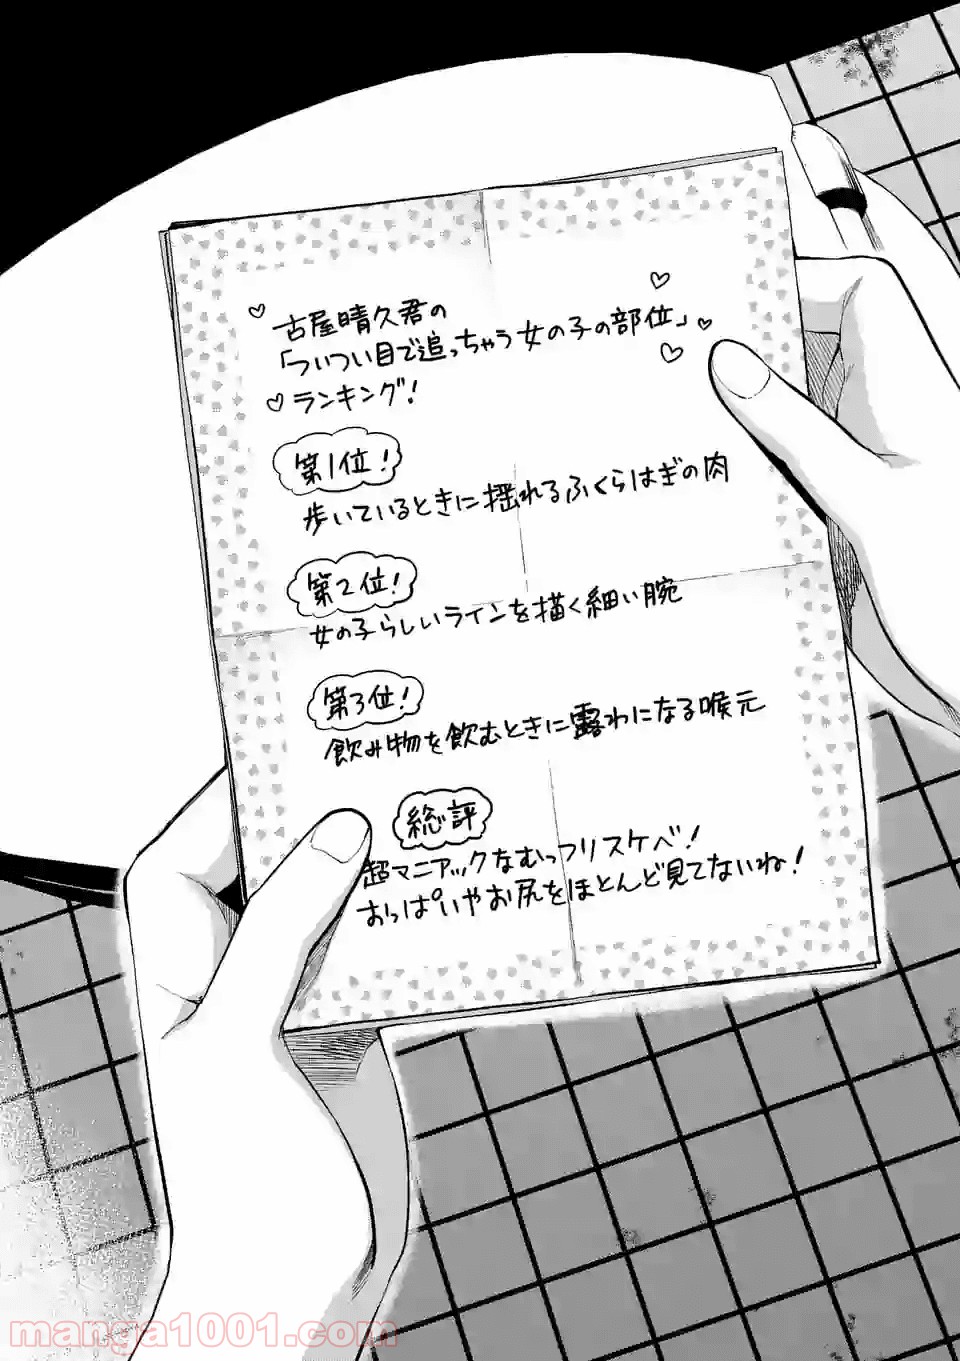 古屋晴久君の
「ついつい目で追っちゃう女の子の部位」
ランキング!
第1位!
歩いているときに揺れるふくらはぎの肉
第2位!
女の子らしいラインを描く細い腕
第3位!
飲み物を飲むときに露わになる喉元
総評
超マニアックなむっつりスケベ!
おっぱいやお尻をほとんど見てないね!
manga1001.com